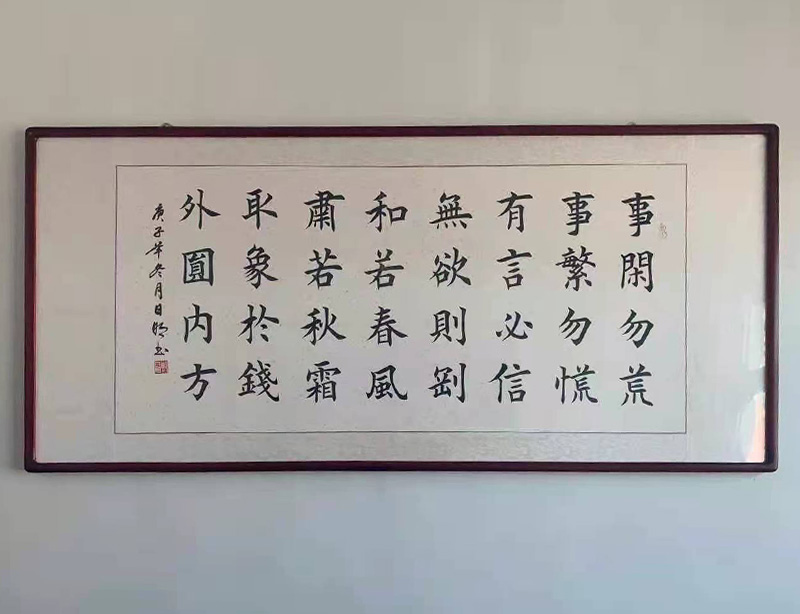 事閑勿荒
事繁勿慌
有言必信
無欲則剛
和若春風
肅若秋霜
取象於錢
外圓内方
庚子年冬月日明书